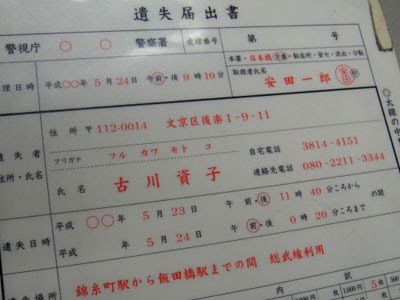 遺失届出書
警視庁 ○ ○ 警察署 受理番号 第 号
本署・日本橋交番・駐在所・安セ・派出・分駐
理日時 平成○○年 5月24日 午前・後 9時10分 取扱者氏名 安田一郎 安田
◎太線の中
住所 〒112-0014 文京区後楽1-9-11
遺失者
住所・氏名
フリガナ フル カワ モト コ
氏名 古川資子
自宅電話 3814-4151
連絡先電話 080-2211-3344
遺失日時
平成 ○○年 5月23日 午前・後 11時40分ころから
年 5月24日 午前・後 0時20分ころまで の間
遺失場所 錦糸町駅から飯田橋駅までの間 総武線利用
内訳